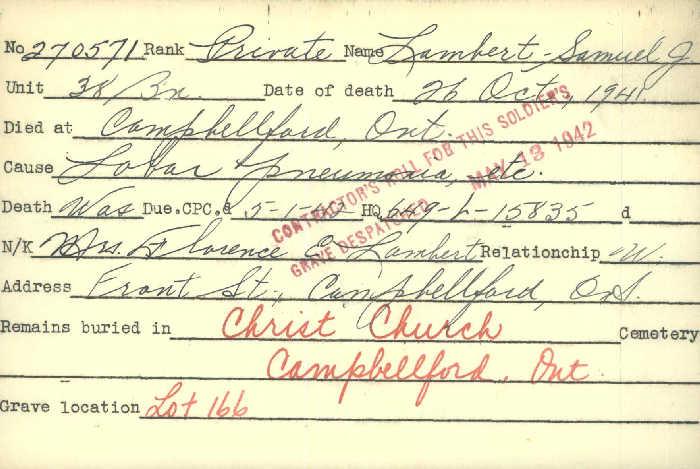 No 270571 Rank Private Name Lambert, Samuel J
Unit 38/Bn. Date of death 26 Oct., 1941.
Died at Campbellford, Ont.
Cause Lobar pneumonia, etc.
Death Was Due. CPC.d 5-1-42 HQ 649-L-15835 d
N/K Mrs. Florence E. Lambert Relationship W.
Address Front St., Campbellford, Ont.
Remains buried in Christ Church Cemetery
Campbellford, Ont
Grave location Lot 166
CONTRACTOR'S ROLL FOR THIS SOLDIER'S
GRAVE DESPATCHED MAY 13 1942